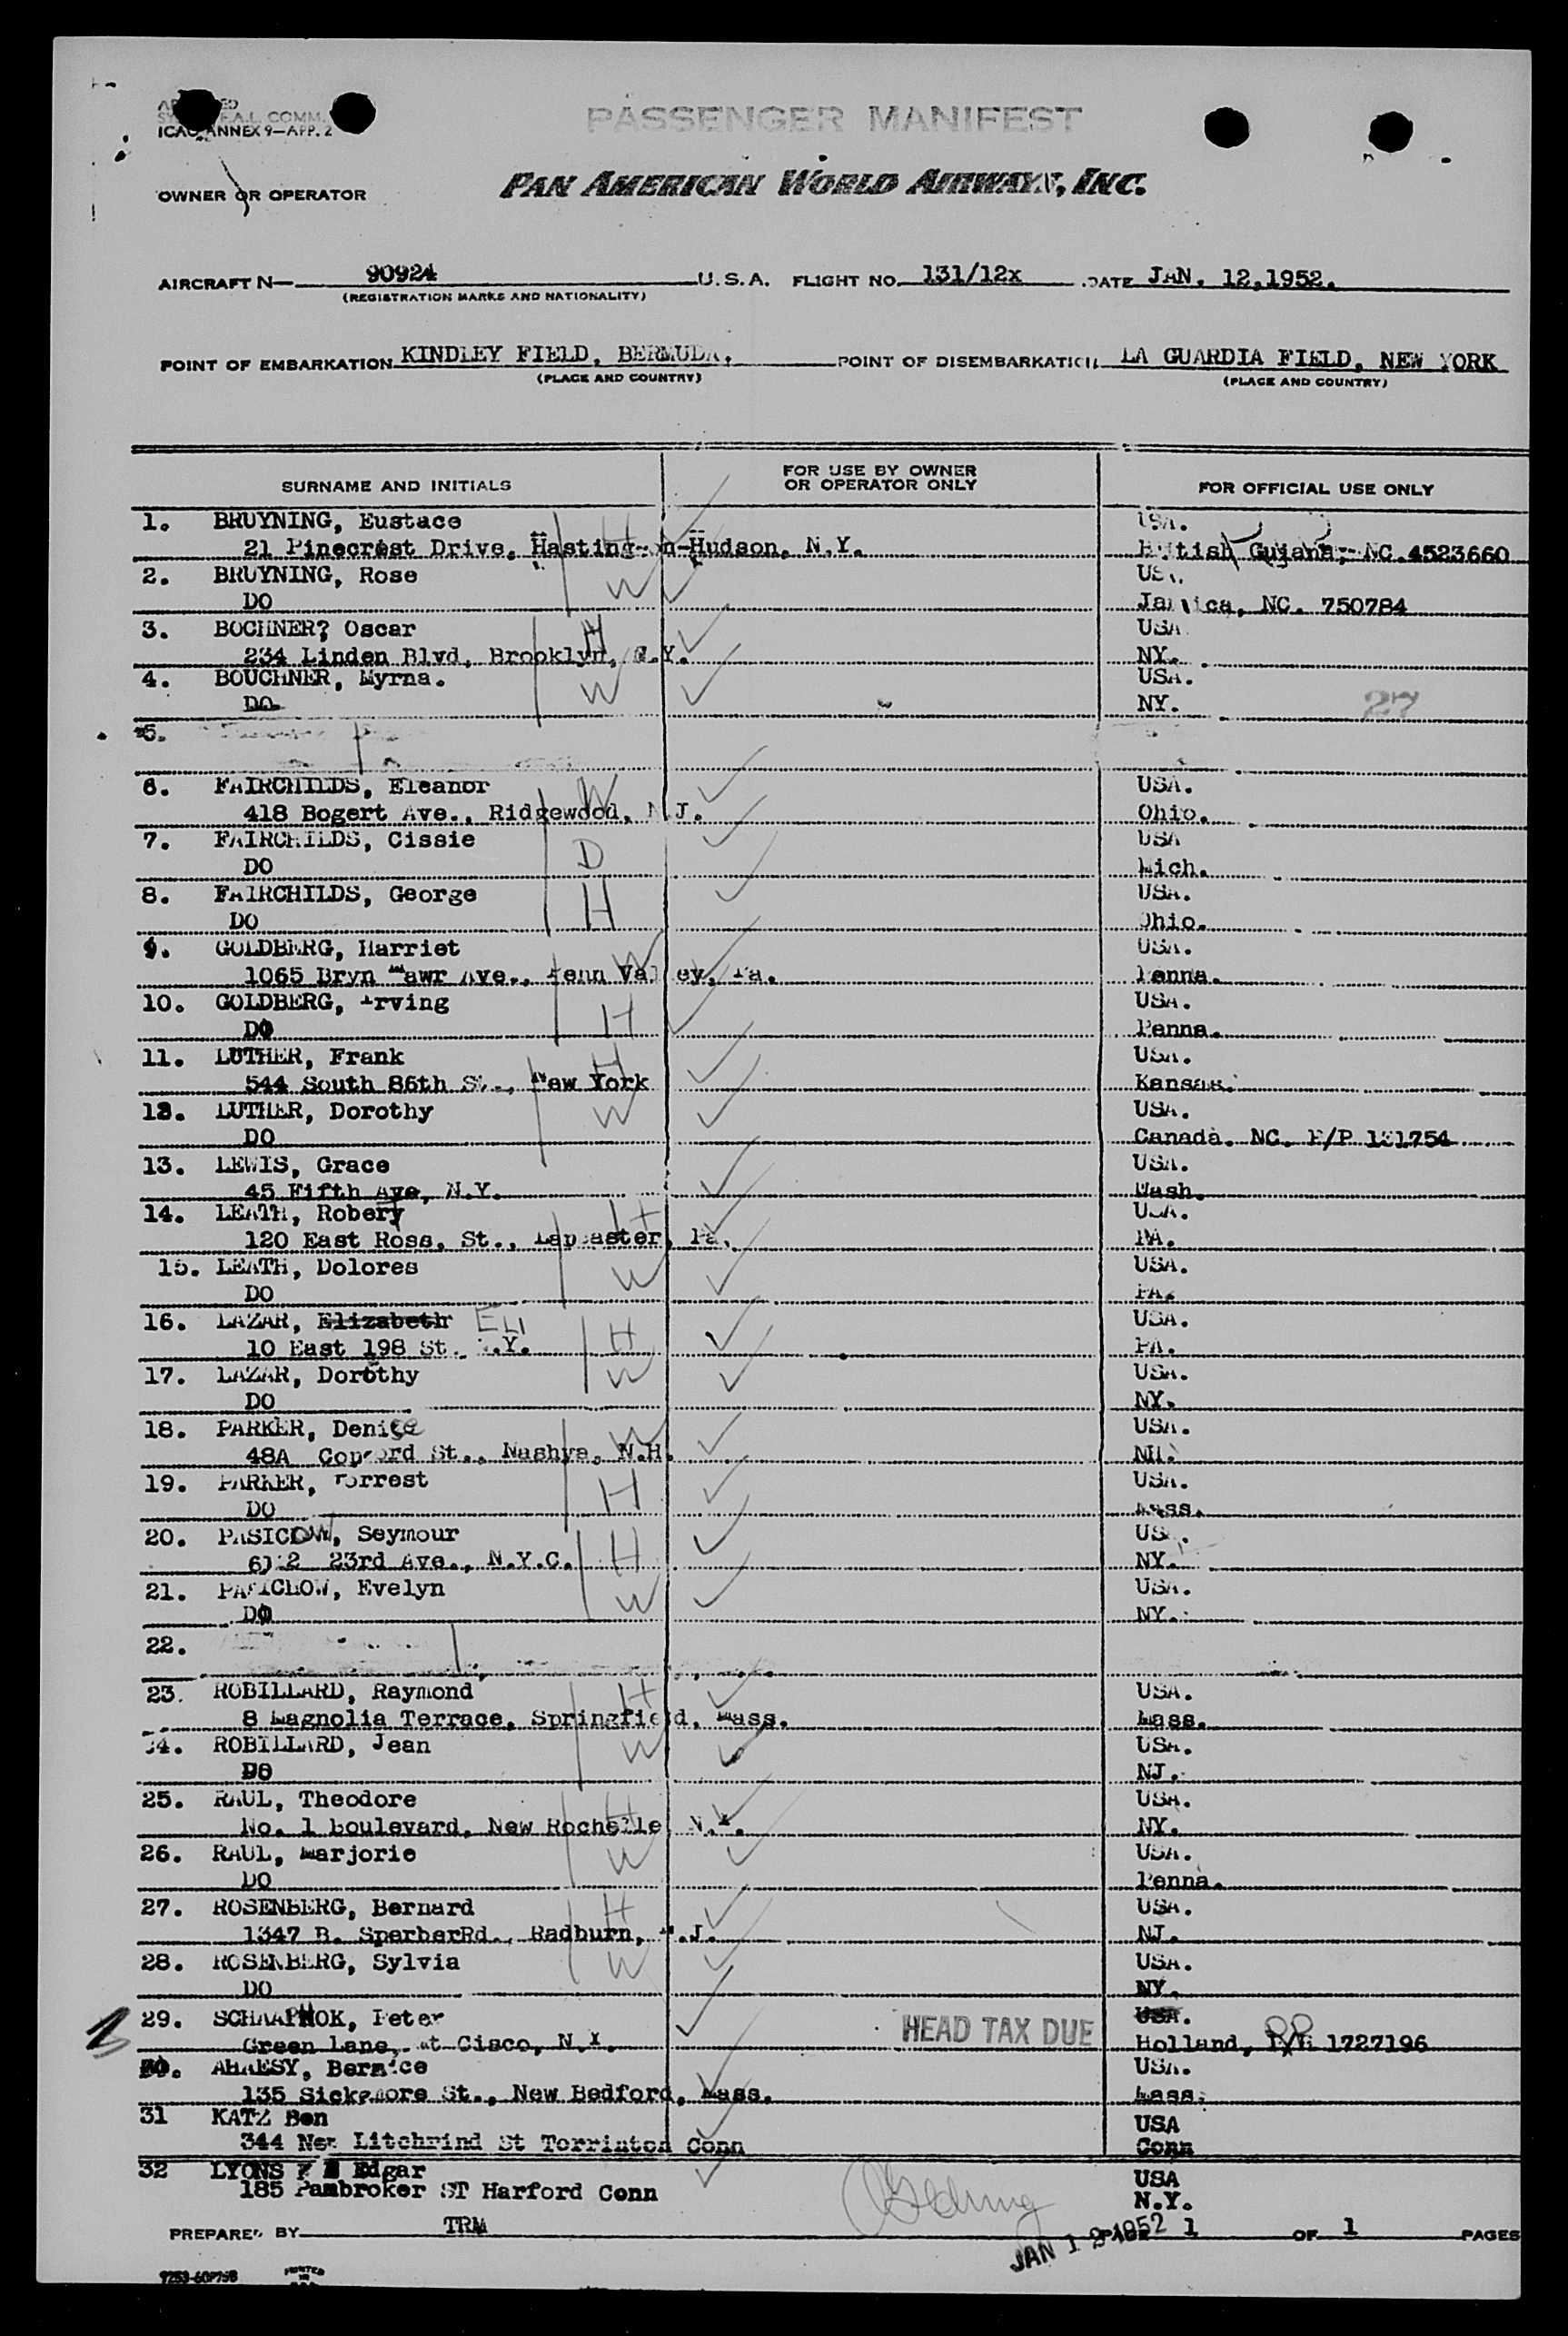 ICAO ANNEX 9—APP. 2
PASSENGER MANIFEST
OWNER OR OPERATOR
PAN AMERICAN WORLD AIRWAYS, INC.
AIRCRAFT N— 90924 U.S.A. FLIGHT NO. 131/12x DATE JAN. 12,1952.
(REGISTRATION MARKS AND NATIONALITY)
POINT OF EMBARKATION KINDLEY FIELD, BERMUDA. POINT OF DISEMBARKATION LA GUARDIA FIELD, NEW YORK
(PLACE AND COUNTRY) (PLACE AND COUNTRY)
SURNAME AND INITIALS FOR USE BY OWNER OR OPERATOR ONLY FOR OFFICIAL USE ONLY
1. BRUYNING, Eustace H USA.
21 Pinecrest Drive, Hasting-on-Hudson, N.Y. British Guiana, NC.4523660
2. BRUYNING, Rose W USA.
DO Jamaica, NC. 750784
3. BOCHNER? Oscar H USA
234 Linden Blvd, Brooklyn, N.Y. NY.
4. BOUCHNER, Myrna. W USA.
DO NY. 27
5.
6. FAIRCHILDS, Eleanor W USA.
418 Bogert Ave., Ridgewood, N.J. Ohio.
7. FAIRCHILDS, Cissie D USA
DO Mich.
8. FAIRCHILDS, George H USA.
DO Ohio.
9. GOLDBERG, Harriet W USA.
1065 Bryn Mawr Ave., Penn Valley, Pa. Penna.
10. GOLDBERG, Irving H USA.
DO Penna.
11. LUTHER, Frank H USA.
544 South 86th St., New York Kansas.
12. LUTHER, Dorothy W USA.
DO Canada. NC. P/P 131754
13. LEWIS, Grace USA.
45 Fifth Ave, N.Y. Wash.
14. LEATH, Robery H USA.
120 East Ross, St., Lancaster, Pa. PA.
15. LEATH, Dolores W USA.
DO PA.
16. LAZAR, Elizabeth ELI H USA.
10 East 198 St. N.Y. PA.
17. LAZAR, Dorothy W USA.
DO NY.
18. PARKER, Denise W USA.
48A Concord St., Nashya, N.H. NH.
19. PARKER, Forrest H USA.
DO Mass.
20. PASICOW, Seymour H USA.
23rd Ave., N.Y.C. NY.
21. PASICHOW, Evelyn W USA.
DO NY.
22.
23. ROBILLARD, Raymond H USA.
8 Magnolia Terrace, Springfield, Mass. Mass.
24. ROBILLARD, Jean W USA.
DO NJ.
25. RAUL, Theodore H USA.
No. 1 boulevard, New Rochelle, N.Y. NY.
26. RAUL, Marjorie W USA.
DO Penna.
27. ROSENBERG, Bernard H USA.
1347 B. SperberRd., Radburn, N.J. NJ.
28. ROSENBERG, Sylvia W USA.
DO NY.
29. SCHAAPHOK, Peter USA.
Green Lane, Mt Cisco, N.Y. HEAD TAX DUE Holland, 1727196
30. AHAESY, Bernice USA.
135 Sickamore St., New Bedford, Mass. Mass.
31 KATZ Ben USA
344 New Litchrind St Torrinton Conn Conn
32 LYONS Edgar USA
185 Pambroker ST Harford Conn N.Y.
PREPARED BY TRM PAGE 1 OF 1 PAGES
JAN 12 1952